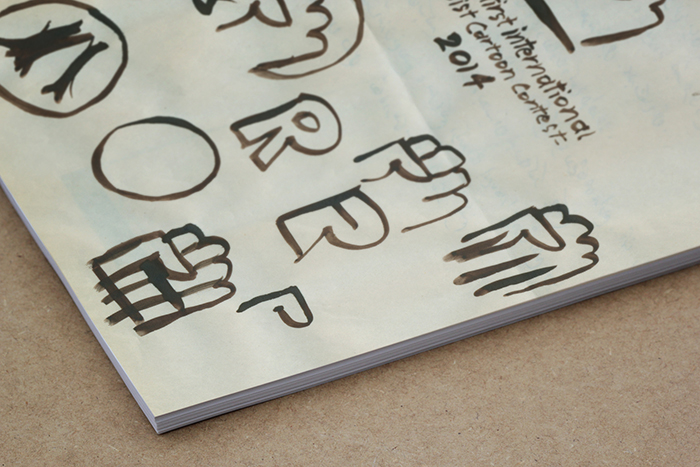 R
First international
ist Cartoon Contest.
2014
R
R
R
R
P